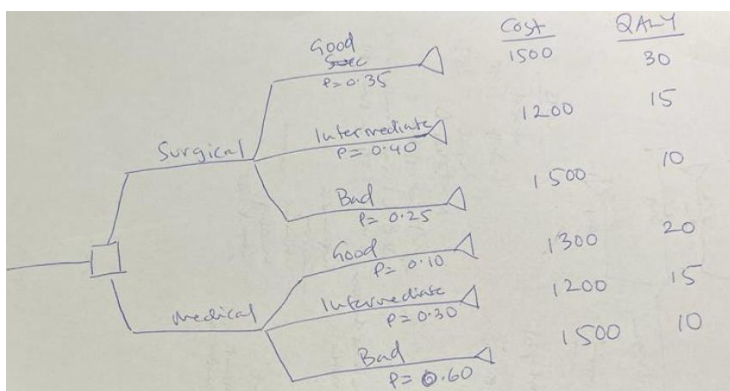 Cost QALY
Good
P=0.35
1500 30
Surgical
Intermediate
P=0.40
1200 15
Bad
P=0.25
1500 10
Medical
Good
P=0.10
1300 20
Intermediate
P=0.30
1200 15
Bad
P=0.60
1500 10